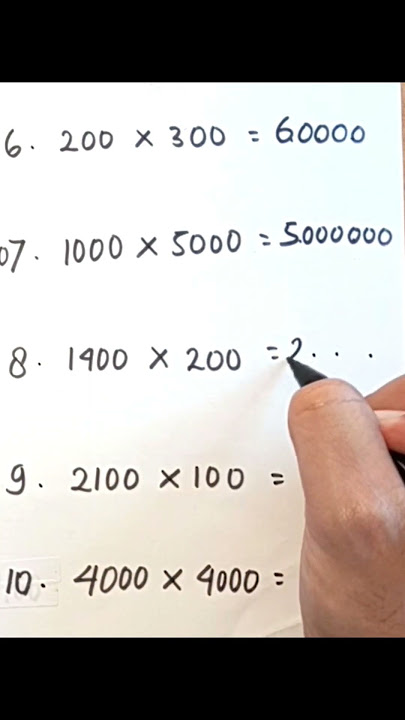 6. 200 × 300 = 60000
07. 1000 × 5000 = 5000000
8. 1400 × 200 = 2...
9. 2100 × 100 =
10. 4000 × 4000 =